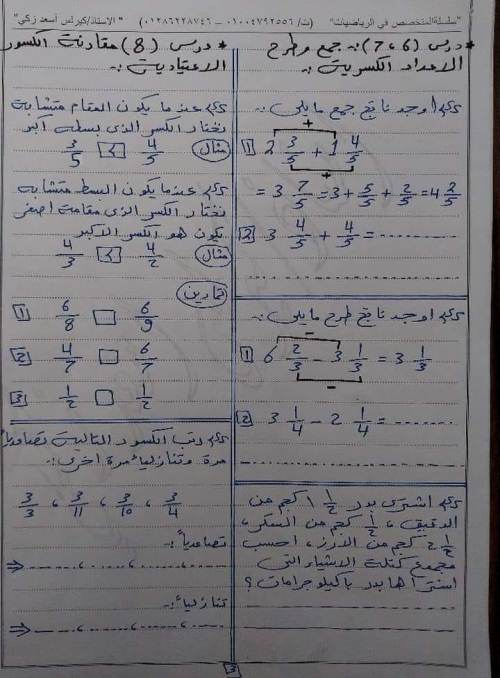 "سلسلة المتخصص في الرياضيات" (ت/ ٠١٠٠٤٧٩٢٥٥٦ – ٠١٢٨٦٢٢٨٧٤٦) "الاستاذ/كيرلس أسعد زكي"
* درس (٦، ٧):- جمع وطرح
الاعداد الكسرية :-
س/ اوجد ناتج جمع ما يلى :-
1 2 3/5 + 1 4/5
= 3 7/5 = 3 + 5/5 + 2/5 = 4 2/5
2 3 4/5 + 4/5 = ........
س/ اوجد ناتج طرح ما يلى :-
1 6 2/3 - 3 1/3 = 3 1/3
2 3 1/4 - 2 1/4 = ........
س/ اشترى بدر 1 1/2 كجم من
الدقيق، 1/2 كجم من السكر،
2 1/2 كجم من الأرز، احسب
مجموع كتلة الاشياء التى
اشتراها بدر بالكيلوجرامات؟
* درس (8) مقارنة الكسور
الاعتيادية :-
س/ عندما يكون المقام متشابة
نختار الكسر الذى بسطه أكبر
مثال 4/5 > 3/5
س/ عندما يكون البسط متشابه
نختار الكسر الذى مقامه اصغر
يكون هو الكسر الأكبر
مثال 4/2 > 4/3
تمارين
1 6/8 □ 6/9
2 4/7 □ 6/7
3 1/2 □ 1/2
س/ رتب الكسور التالية تصاعدياً
مرة وتنازلياً مرة اخرى :-
3/4 ، 3/10 ، 3/11 ، 3/3
تصاعدياً :-
تنازلياً :-
3